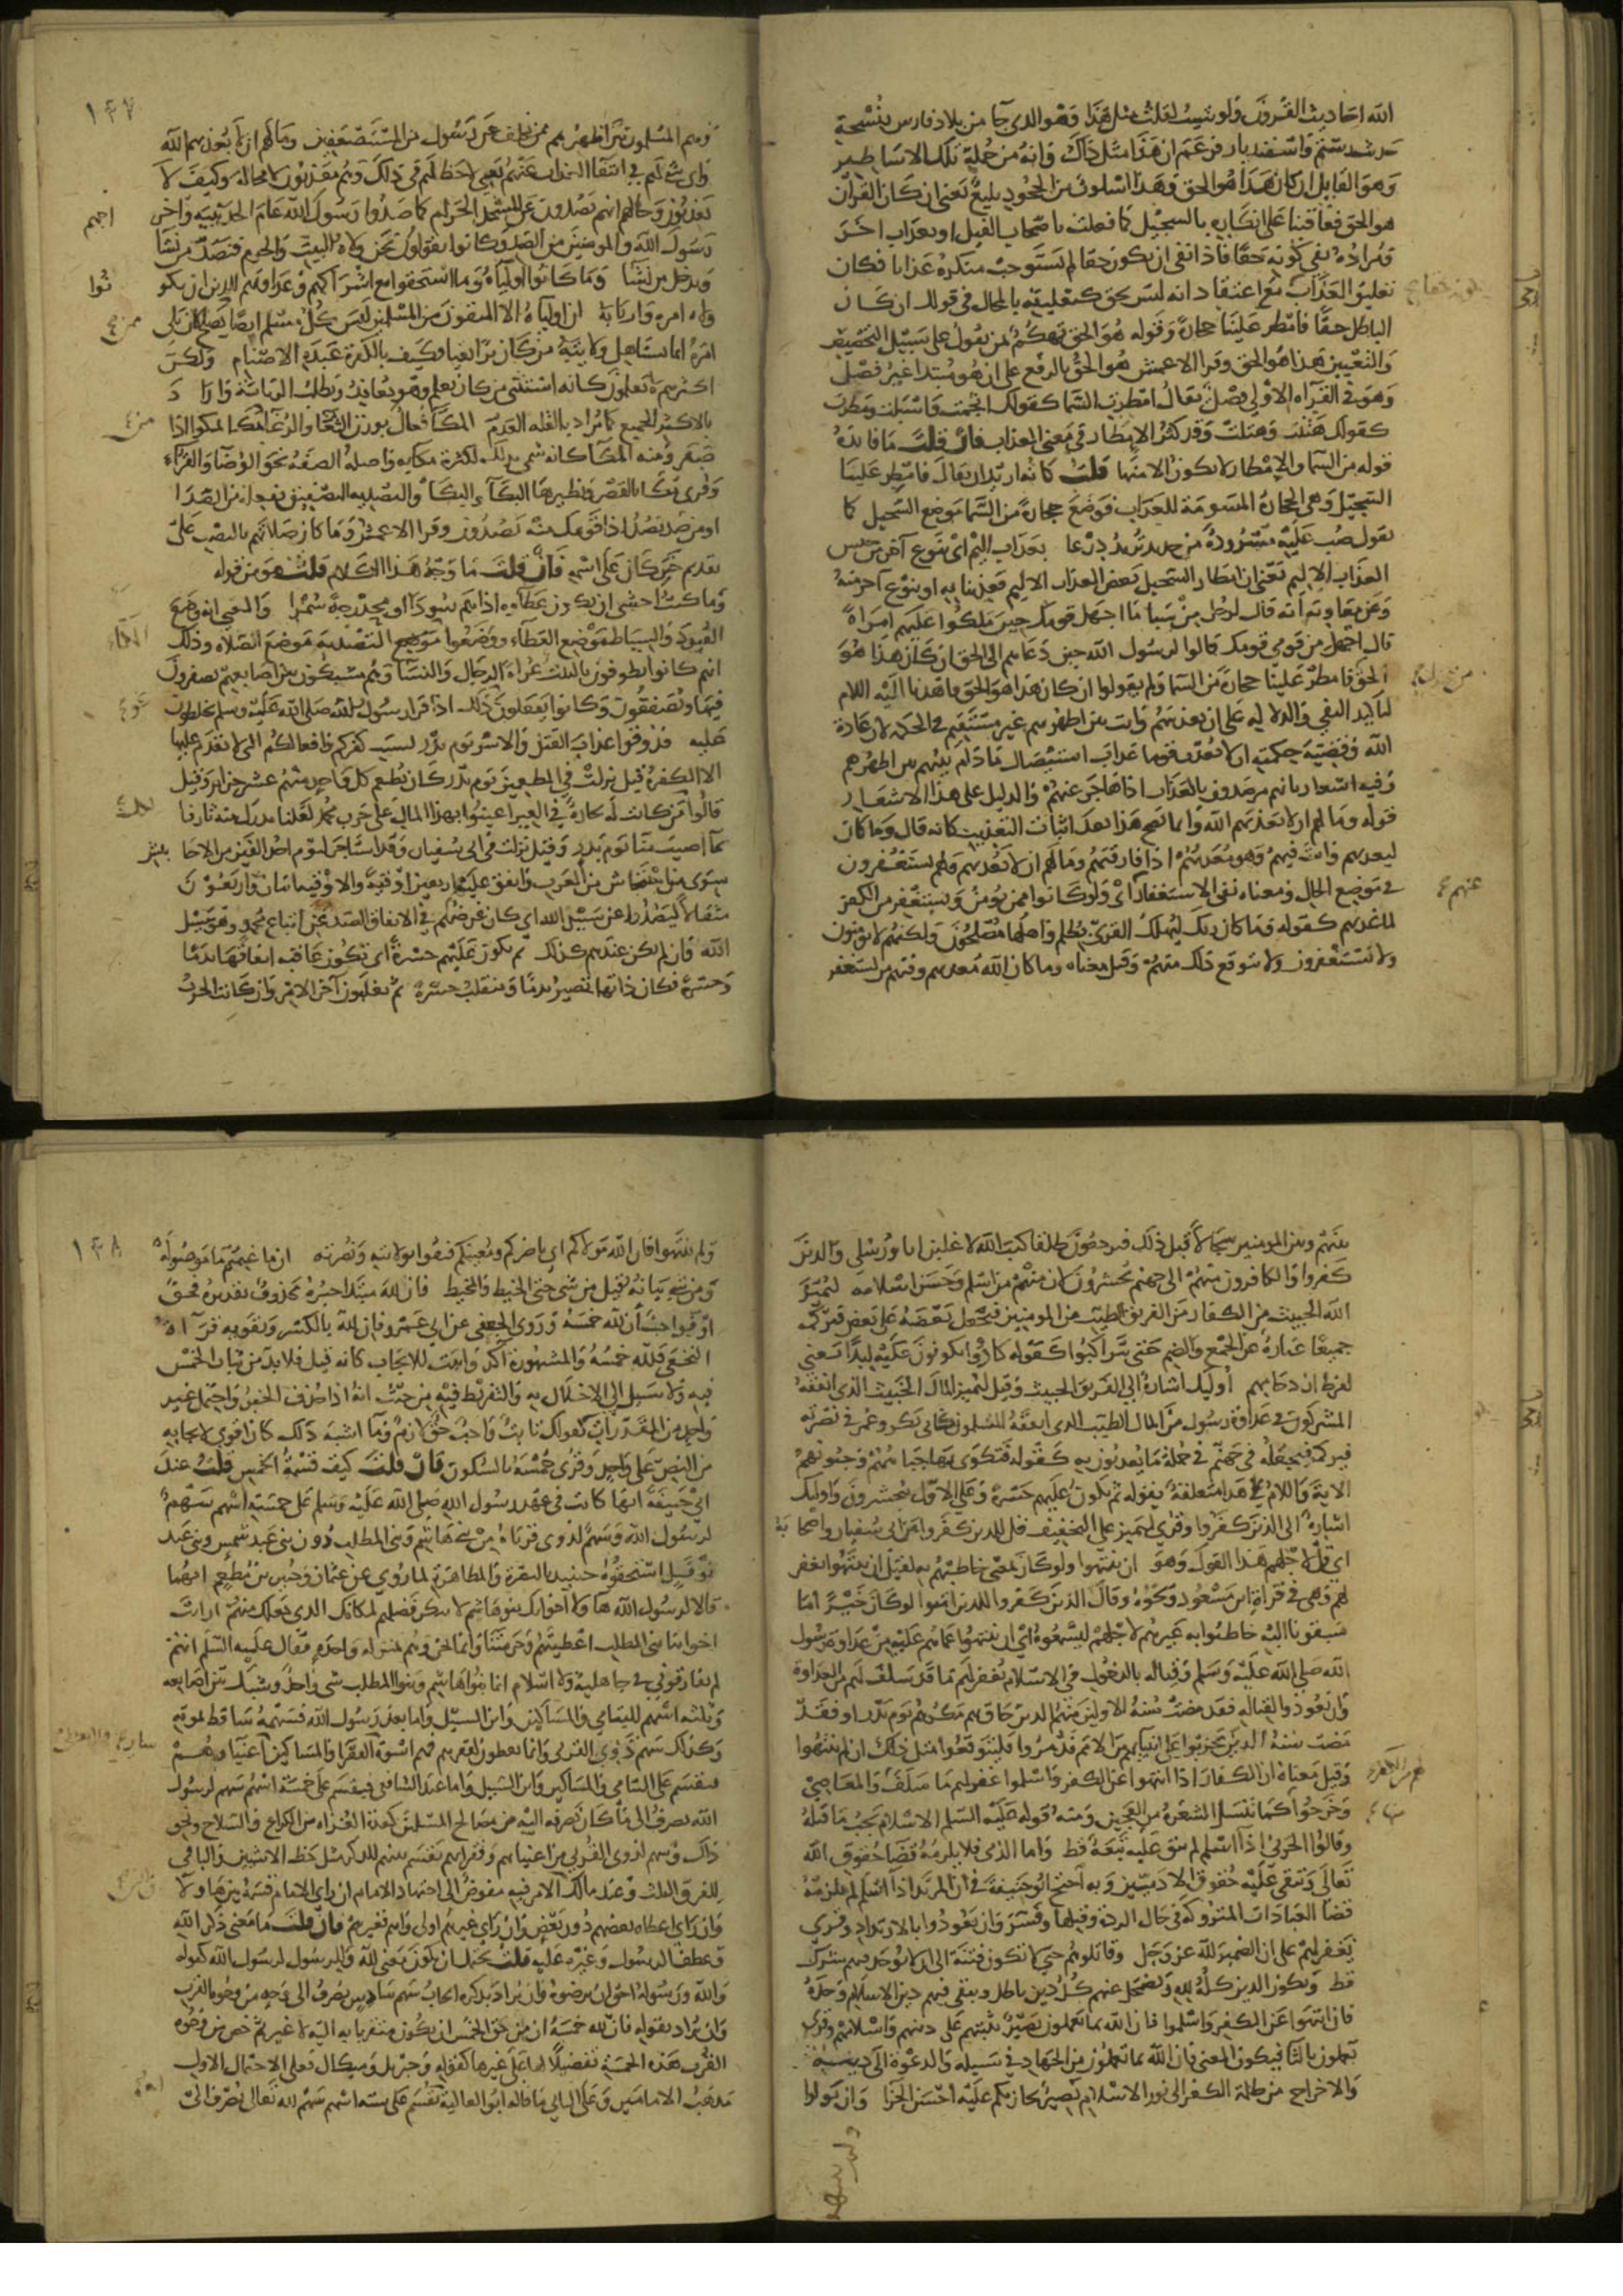 الله احاديث القرون ولو شئت لقلت مثل هذا وهو الذي جا من بلاد فارس بنسخة
حديث رستم واسفنديار فزعم ان هذا مثل ذاك وانه من جملة تلك الاساطير
وهو القايل ان كان هذا هو الحق وهذا اسلوب من الجحود بليغ يعني ان كان القرآن
هو الحق فعاقبنا على انكاره بالسجيل كما فعلت باصحاب الفيل او بعذاب اخر
ومراده نفي كونه حقا فاذا انتفى ان يكون حقا لم يستوجب منكره عذابا فكان
تعليق العذاب مع اعتقاد انه ليس بحق كتعليقه بالمحال في قولك ان كان
الباطل حقا فامطر علينا حجارة وقوله هو الحق تهكم بمن يقول على سبيل التخصيص
والتعيين هذا هو الحق وقرا الاعمش هو الحق بالرفع على ان هو مبتدا غير فصل
وهو في القرآه الاولى فصل يقال امطرت السما كقولك انجمت واسبلت ومطرت
كقولك هتنت وهتلت وقد كثر الامطار في معنى العذاب فان قلت ما فائدة
قوله من السما والامطار لا يكون الا منها قلت كانه اريد ان يقال فامطر علينا
السجيل وهي الحجارة المسومة للعذاب فوضع حجارة من السما موضع السجيل كما
يقول صب عليه مسرودة من حديد تريد درعا بعذاب اليم اي بنوع آخر من جنس
العذاب الاليم يعني ان امطار السجيل بعض العذاب الاليم فعذبنا به او بنوع آخر منه
وعن معاوية انه قال لرجل من سبا ما اجهل قومك حين ملكوا عليهم امراة
قال اجهل من قومي قومك قالوا لرسول الله حين دعاهم الى الحق ان كان هذا هو
الحق فامطر علينا حجارة من السما ولم يقولوا ان كان هذا هو الحق فاهدنا اليه اللام
لتاكيد النفي والدلاله على ان تعذيبهم وانت بين اظهرهم غير مستقيم في الحكمة لان عادة
الله وقضية حكمته ان لا يعذب قوما عذاب استيصال ما دام نبيهم بين اظهرهم
وفيه اشعار بانهم مرصدون بالعذاب اذا هاجر عنهم والدليل على هذا الاشعار
قوله وما لهم ان لا يعذبهم الله وانما يصح هذا بعد اثبات التعذيب كانه قال وما كان
ليعذبهم وانت فيهم وهو معذبهم اذا فارقتهم وما لهم ان لا يعذبهم وهم يستغفرون
في موضع الحال ومعناه نفي الاستغفار اي ولو كانوا ممن يومن ويستغفر من الكفر
لما عذبهم كقوله وما كان ربك ليهلك القرى بظلم واهلها مصلحون ولكنهم لا يؤمنون
ولا يستغفرون ولا يتوقع ذلك منهم وقيل معناه وما كان الله معذبهم وفيهم من يستغفر
عنهم
١٤٧
وهم المسلمون بين اظهرهم ممن تخلف عن رسول من المستضعفين وما لهم ان لا يعذبهم الله
واي شي لهم في انتفا العذاب عنهم يعني لا حظ لهم في ذلك وهم معذبون لا محالة وكيف لا
يعذبون وحالهم انهم يصدون عن المسجد الحرام كما صدوا رسول الله عام الحديبيه واخر
اجهم
رسول الله والمومنين من الصد وكانوا يقولون نحن ولاة البيت والحرم فنصد من نشا
وندخل من نشا وما كانوا اولياه وما استحقوا مع اشراكهم وعداوتهم للدين ان يكو
نوا
ولاه امره واربابه ان اولياؤه الا المتقون من المسلمين ليس كل مسلم ايضا يصلح لان يلي
امره انما يستاهل ولايته من كان برا تقيا فكيف بالكفرة عبدة الاصنام ولكن
اكثرهم لا يعلمون كانه استثنى من كان يعلم وهو يعاند ويطلب الرياسة او اراد
بالاكثر الجميع كما يراد بالقله العدم المكا فعال بوزن الثغا والرغا من مكا يمكو اذا
صفر ومنه المكا كانه سمي بذلك لكثرة مكايه واصله الصفة نحو الوضا والقرا
وقري مكا بالقصر ونظيرهما البكا والبكا والتصديه التصفيق تفعله من الصدا
او من صد يصد اذا قومك منه يصدون وقرا الاعمش وما كان صلاتهم بالنصب على
تقديم خبر كان على اسمه فان قلت ما وجه هذا الكلام قلت هو من قوله
وما كنت اخشى ان يكون عطاوه اداهم سودا او محدرجة سمرا والمعنى انه وضع
القيود والسياط موضع العطاء ووضعوا المكاء والتصدية موضع الصلاه وذلك
انهم كانوا يطوفون بالبيت عراة الرجال والنسا وهم مشبكون بين اصابعهم يصفرون
فيها ويصفقون وكانوا يفعلون ذلك اذا قرا رسول الله صلى الله عليه وسلم يخلطون
عليه فذوقوا عذاب القتل والاسر يوم بدر بسبب كفركم وافعالكم التي لا يقدم عليها
الا الكفرة قيل نزلت في المطعمين يوم بدر كان يطعم كل واحد منهم عشر جزاير وقيل
قالوا لمن كانت له تجارة في العير اعينوا بهذا المال على حرب محمد لعلنا ندرك منه ثارنا
بما اصيب منا يوم بدر وقيل نزلت في ابي سفيان وقد استاجر ليوم احد الفين من الاحابيش
سوى من استجاش من العرب وانفق عليهم اربعين اوقية والاوقيه اثنان واربعون
مثقالا ليصدوا عن سبيل الله اي كان غرضهم في الانفاق الصد عن اتباع محمد وهو سبيل
الله وان لم يكن عندهم كذلك ثم تكون عليهم حسرة اي تكون عاقبه انفاقها ندما
وحسرة فكان ذاتها تصير ندما وتنقلب حسرة ثم يغلبون آخر الامر وان كانت الحرب
بينهم وبين المومنين سجالا قبل ذلك فيرجعون طلقا كتب الله لاغلبن انا ورسلي والذين
كفروا والكافرون منهم الى جهنم يحشرون لان منهم من اسلم وحسن اسلامه ليميز
الله الخبيث من الكفار من الفريق الطيب من المومنين فيجعل بعضه على بعض فيركمه
جميعا عبارة عن الجمع والضم حتى يتراكبوا كقوله كادوا يكونون عليه لبدا يعني
لفرط ازدحامهم اوليك اشارة الى الفريق الخبيث وقيل ليميز المال الخبيث الذي انفقه
المشركون في عداوة رسول من المال الطيب الذي انفقه المسلمون كابي بكر وعمر في نصرته
فيركمه فيجعله في جهنم في جملة ما يعذبون به كقوله فتكوى بها جباههم وجنوبهم
الاية واللام على هذا متعلقة بقوله ثم تكون عليهم حسرة وعلى الاول بيحشرون واوليك
اشارة الى الذين كفروا وقري ليميز على التخفيف قل للذين كفروا من ابي سفيان واصحابه
اي قل لاجلهم هذا القول وهو ان ينتهوا ولو كان بمعنى خاطبهم به لقيل ان تنتهوا يغفر
لكم وهي في قراة ابن مسعود ونحوه وقال الذين كفروا للذين امنوا لو كان خيرا ما
سبقونا اليه خاطبوا به غيرهم لاجلهم ليسمعوه اي ان ينتهوا عما هم عليه من عداوة رسول
الله صلى الله عليه وسلم وقتاله بالدخول في الاسلام يغفر لهم ما قد سلف لهم من العداوة
وان يعودوا لقتاله فقد مضت سنة الاولين منهم الذين حاق بهم مكرهم يوم بدر او فقد
مضت سنة الذين تحزبوا على انبيائهم من الامم فدمروا فليتوقعوا مثل ذلك ان لم ينتهوا
وقيل معناه ان الكفار اذا انتهوا عن الكفر واسلموا غفر لهم ما سلف والمعاصي
وخرجوا كما تنسل الشعرة من العجين ومنه قوله عليه السلم الاسلام يجب ما قبله
وقالوا الحربي اذا اسلم لم تبق عليه تبعة قط واما الذمي فلا يلزمه قضا حقوق الله
تعالى وتبقى عليه حقوق الادميين وبه احتج ابو حنيفة في ان المرتد اذا اسلم لم يلزمه
قضا العبادات المتروكة في حال الردة وقبلها وفسر وان يعودوا بالارتداد وقري
يغفر لهم على ان الضمير لله عز وجل وقاتلوهم حتى لا تكون فتنة الى ان لا يوجد فيهم شرك
قط ويكون الدين كله لله ويضمحل عنهم كل دين باطل ويبقى فيهم دين الاسلام وحده
فان انتهوا عن الكفر واسلموا فان الله بما يعملون بصير يثيبهم على دينهم واسلامهم وقري
تعملون بالتا فيكون المعنى فان الله بما تعملون من الجهاد في سبيله والدعوة الى دينه
والاخراج من ظلمة الكفر الى نور الاسلام بصير يجازيكم عليه احسن الجزا وان تولوا
١٤٨
ولم ينتهوا فان الله مولاكم اي ناصركم ومعينكم فثقوا بولايته ونصرته انما غنمتم ما موصولة
ومن شي بيانه قيل من شي حتى الخيط والمخيط فان لله مبتدا خبره محذوف تقديره فحق
او فواجب ان لله خمسه وروى الجعفي عن ابي عمرو فان لله بالكسر وتقويه قراة
النخعي فلله خمسه والمشهورة آكد واثبت للايجاب كانه قيل فلا بد من ثبات الخمس
فيه ولا سبيل الى الاخلال به والتفريط فيه من حيث انه اذا حذف الخبر واحتمل غير
واحد من المقدرات كقولك ثابت واجب حق لازم وما اشبه ذلك كان اقوى لايجابه
من النص على واحد وقري خمسه بالسكون فان قلت كيف قسمة الخمس قلت عند
ابي حنيفة انها كانت في عهد رسول الله صلى الله عليه وسلم على خمسة اسهم سهم
لرسول الله وسهم لذوي قرباه من بني هاشم وبني المطلب دون بني عبد شمس وبني عبد
نوفل استحقوه حينيذ بالنصرة والمظاهرة لما روي عن عثمان وجبير بن مطعم انهما
قالا لرسول الله هاولا اخوانك بنو هاشم لا ننكر فضلهم لمكانك الذي جعلك منهم ارايت
اخواننا بني المطلب اعطيتهم وحرمتنا وانما نحن وهم بمنزله واحدة فقال عليه السلم انهم
لم يفارقوني في جاهلية ولا اسلام انما بنوا هاشم وبنوا المطلب شي واحد وشبك بين اصابعه
وثلثه اسهم لليتامى والمساكين وابن السبيل واما بعد رسول الله فسهمه ساقط بموته
وكذلك سهم ذوي القربى وانما يعطون لفقرهم فهم اسوة الفقرا والمساكين اغنياوهم
فيقسم على اليتامى والمساكين وابن السبيل واما عند الشافعي فيقسم على خمسة اسهم سهم لرسول
الله يصرف الى ما كان يصرفه اليه من مصالح المسلمين كعدة الغزاه من الكراع والسلاح ونحو
ذلك وسهم لذوي القربى من اغنيايهم وفقرايهم يقسم بينهم للذكر مثل حظ الانثيين والباقي
للفرق الثلث وعند مالك الامر فيه مفوض الى اجتهاد الامام ان راى الامام قسمة بينها ولا
وان راى اعطاه بعضهم دون بعض وان راى غيرهم اولى واهم فغيرهم فان قلت ما معنى ذكر الله
وعطف الرسول وغيره عليه قلت يحتمل ان يكون معنى لله وللرسول لرسول الله كقوله
والله ورسوله احق ان يرضوه وان يراد بذكره ايجاب سهم سادس يصرف الى وجه من وجوه القرب
وان يراد بقوله فان لله خمسه ان من حق الخمس ان يكون متقربا به اليه لا غير ثم خص من وجوه
القرب هذه الخمسة تفضيلا لها على غيرها كقوله وجبريل وميكال فعلى الاحتمال الاول
مذهب الامامين وعلى الثاني ما قاله ابو العاليه يقسم على ستة اسهم سهم لله تعالى يصرف الى